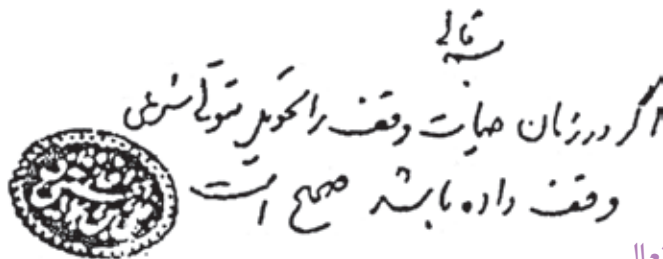 تعالی
اگر در زمان حیات وقف را تحویل متولی شرعی
وقف داده باشد صحیح است